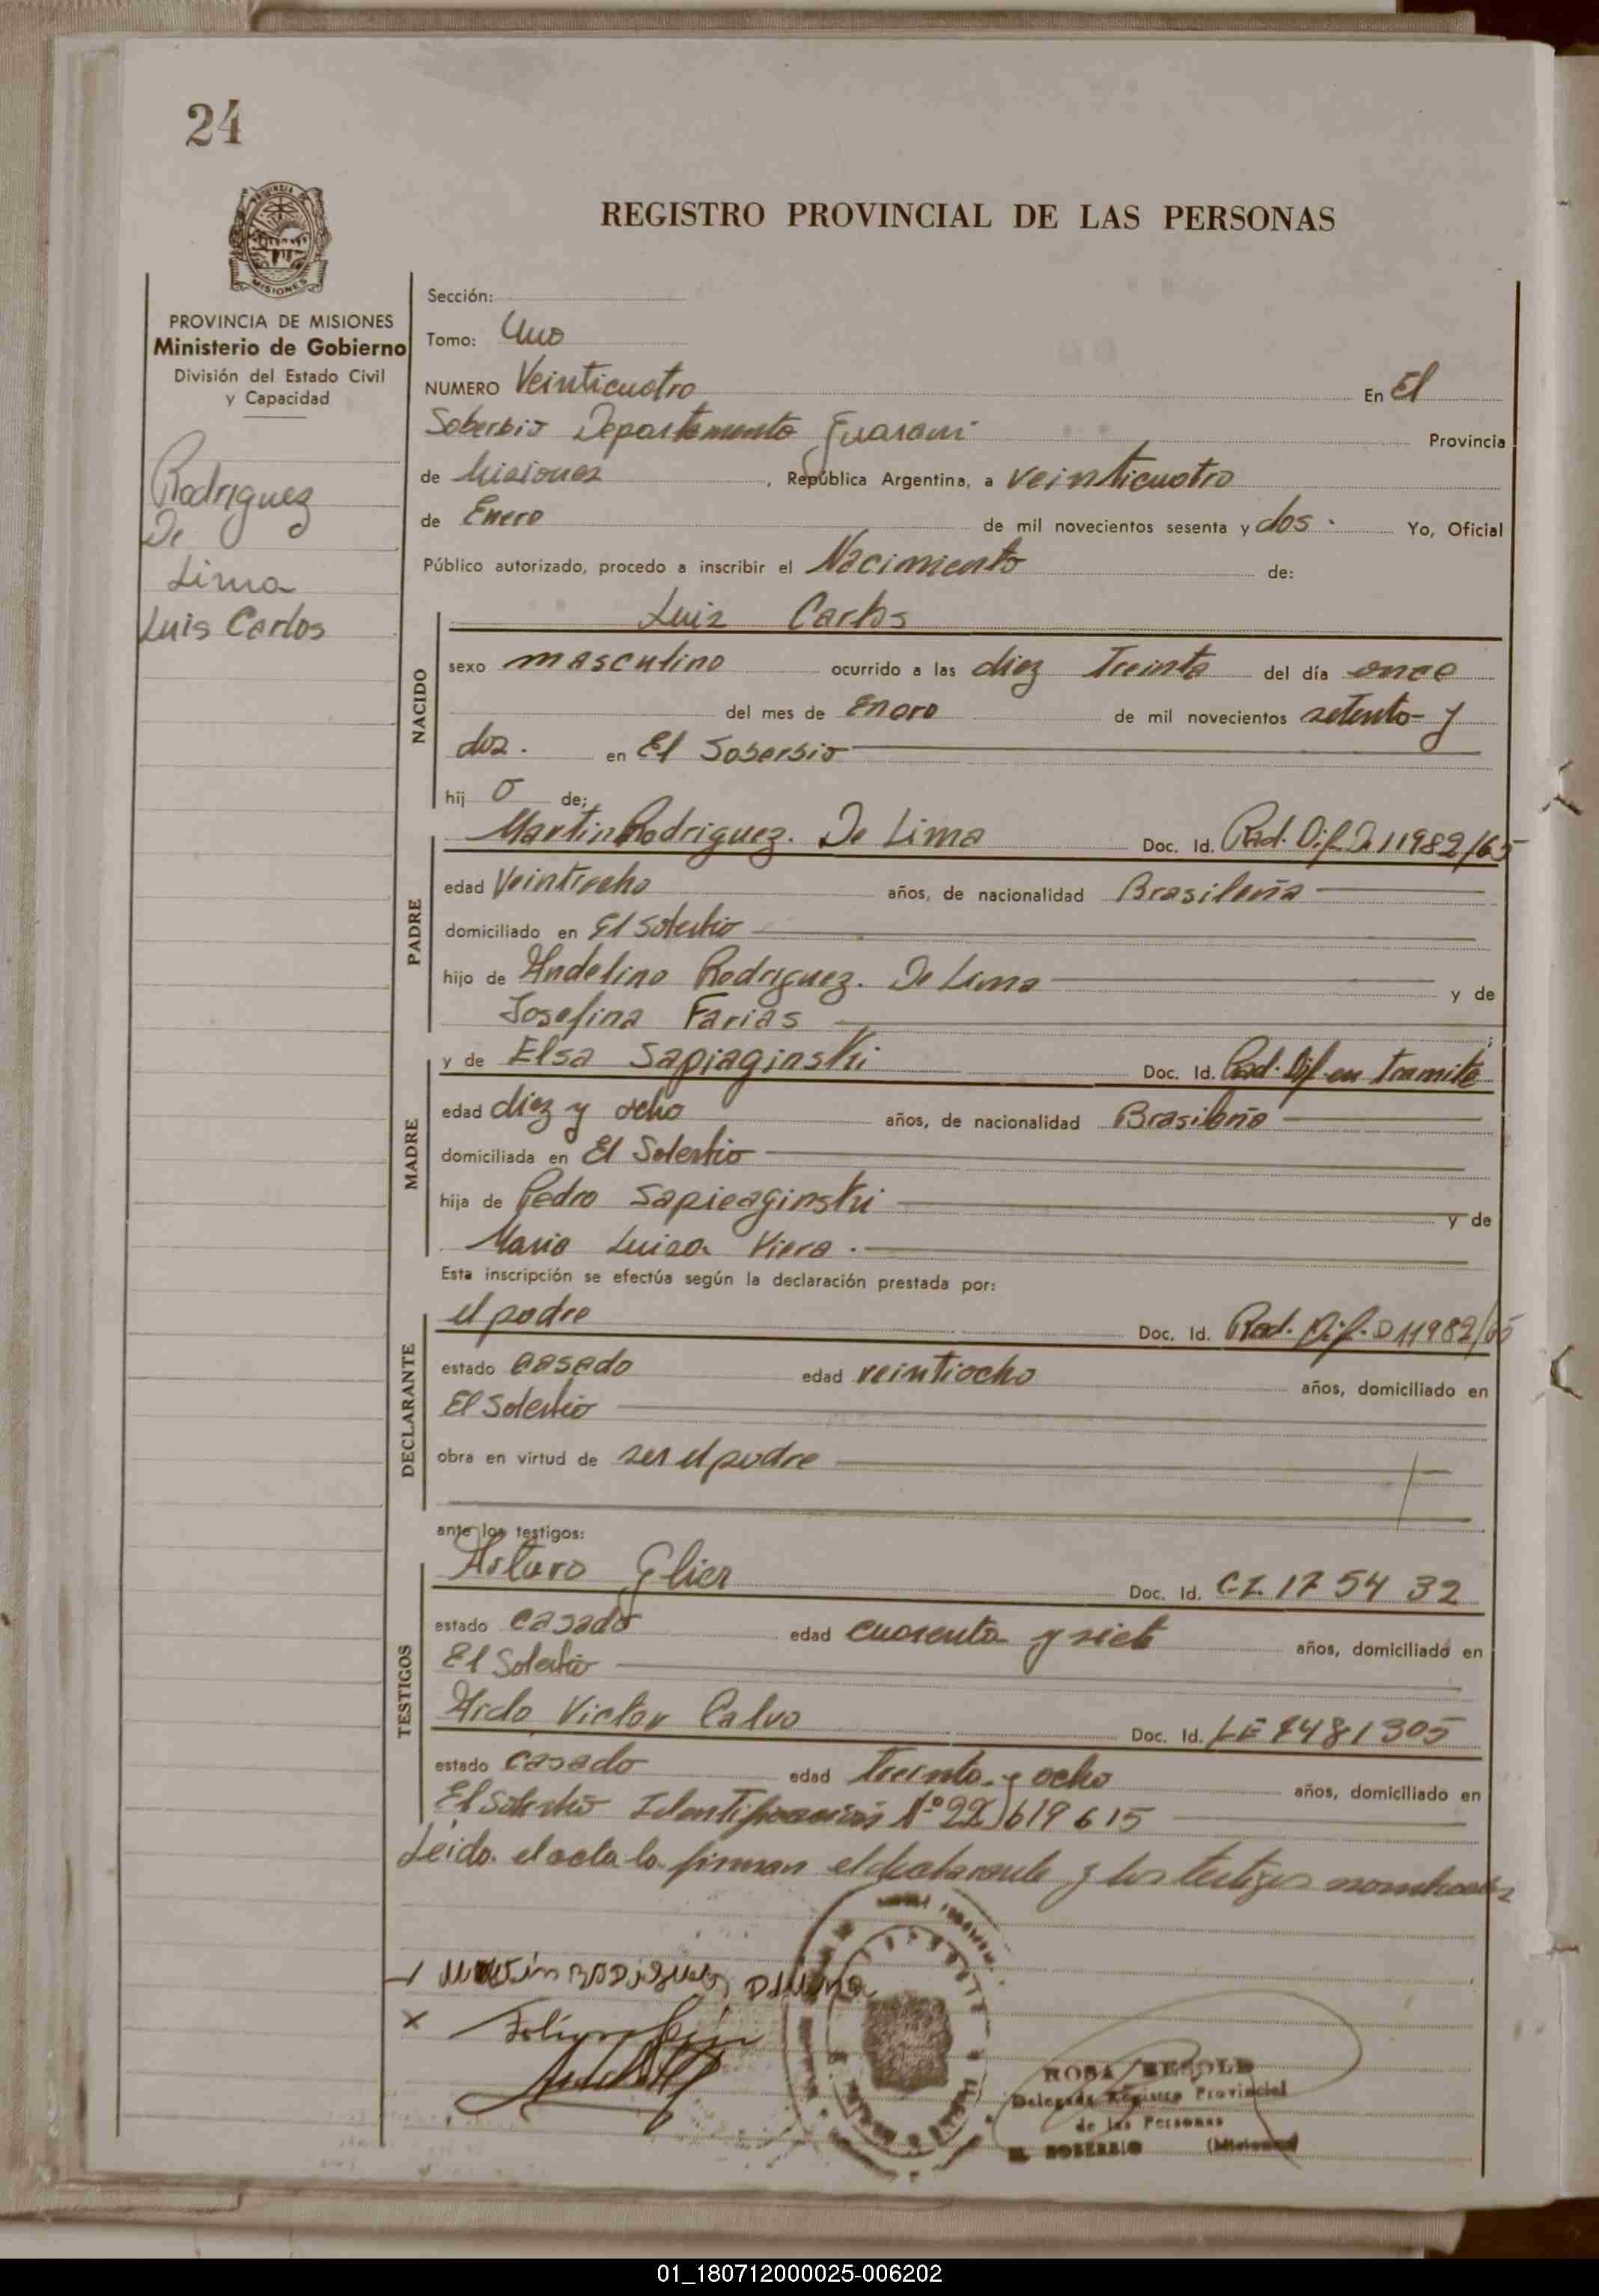 24
REGISTRO PROVINCIAL DE LAS PERSONAS
PROVINCIA DE
MISIONES
PROVINCIA DE MISIONES
Ministerio de Gobierno
División del Estado Civil
y Capacidad
Rodriguez
De
Lima
Luis Carlos
Sección:
Tomo: Uno
NUMERO Veinticuatro En El
Soberbio Departamento Guarani Provincia
de Misiones, República Argentina, a veinticuatro
de Enero de mil novecientos sesenta y dos. Yo, Oficial
Público autorizado, procedo a inscribir el Nacimiento de:
NACIDO
Luis Carlos
sexo masculino ocurrido a las diez Treinta del día once
del mes de Enero de mil novecientos setenta y
dos. en El Soberbio
hij o de:
PADRE
Martin Rodriguez. De Lima Doc. Id. Rad. Dif. D 11982/65
edad Veintiocho años, de nacionalidad Brasileña
domiciliado en El Soberbio
hijo de Andelino Rodriguez. De Lima y de
Josefina Farias ;
MADRE
y de Elsa Sapiaginski Doc. Id. Rad. Dif. en tramite
edad diez y ocho años, de nacionalidad Brasileña
domiciliada en El Soberbio
hija de Pedro Sapieaginski y de
Maria Luisa Viera.
Esta inscripción se efectúa según la declaración prestada por:
DECLARANTE
el padre Doc. Id. Rad. Dif. D 11982/65
estado casado edad veintiocho años, domiciliado en
El Soberbio
obra en virtud de ser el padre
ante los testigos:
TESTIGOS
Arturo Glier Doc. Id. C.I. 17 54 32
estado casado edad cuarenta y siete años, domiciliado en
El Soberbio
Victor Calvo Doc. Id. LE 7481305
estado casado edad treinta y ocho años, domiciliado en
El Soberbio Identificación Nº 22)619615
Leida el acta la firman el declarante y los testigos nombrados
Martin Rodriguez D Lima
x
ROSA
Delegada Registro Provincial
de las Personas
EL SOBERBIO (Misiones)
01_180712000025-006202